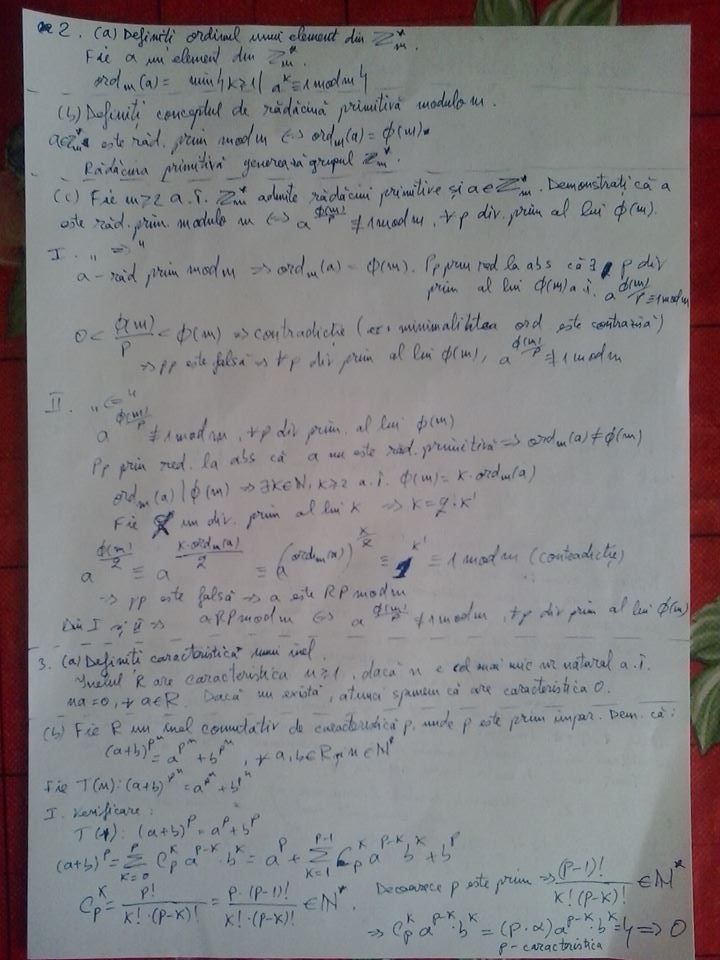 2. (a) Definiți ordinul unui element din ℤ*ₘ.
Fie a un element din ℤ*ₘ.
ordₘ(a) = min{k≥1 | aᵏ≡1 mod m}
(b) Definiți conceptul de rădăcină primitivă modulo m.
a∈ℤ*ₘ este răd. prim mod m ⟺ ordₘ(a) = ϕ(m).
Rădăcina primitivă generează grupul ℤ*ₘ.
(c) Fie m≥2 a.î. ℤ*ₘ admite rădăcini primitive și a∈ℤ*ₘ. Demonstrați că a
este răd. prim. modulo m ⟺ a^(ϕ(m)/p) ≢ 1 mod m, ∀p div. prim al lui ϕ(m).
I. „⟹"
a - răd prim mod m ⟹ ordₘ(a) = ϕ(m). Pp prin red la abs că ∃ p div
prim al lui ϕ(m) a.î. a^(ϕ(m)/p) ≡ 1 mod m
0 < ϕ(m)/p < ϕ(m) ⟹ contradicție (minimalitatea ord este contrazisă)
⟹ pp este falsă ⟹ ∀p div prim al lui ϕ(m), a^(ϕ(m)/p) ≢ 1 mod m
II. „⟸"
a^(ϕ(m)/p) ≢ 1 mod m, ∀p div prim. al lui ϕ(m)
Pp prin red. la abs că a nu este răd. primitivă ⟹ ordₘ(a) ≠ ϕ(m)
ordₘ(a) | ϕ(m) ⟹ ∃k∈ℕ, k≥2 a.î. ϕ(m) = k·ordₘ(a)
Fie q un div. prim al lui k ⟹ k = q·k'
a^(ϕ(m)/q) ≡ a^(k·ordₘ(a)/q) ≡ (a^(ordₘ(a)))^(k/q) ≡ 1^(k') ≡ 1 mod m (contradicție)
⟹ pp este falsă ⟹ a este RP mod m
Din I și II ⟹ a RP mod m ⟺ a^(ϕ(m)/p) ≢ 1 mod m, ∀p div prim al lui ϕ(m)
3. (a) Definiți caracteristica unui inel.
Inelul R are caracteristica n≥1, dacă n e cel mai mic nr natural a.î.
na=0, ∀a∈R. Dacă nu există, atunci spunem că are caracteristica 0.
(b) Fie R un inel comutativ de caracteristică p, unde p este prim impar. Dem. că:
(a+b)^(pⁿ) = a^(pⁿ) + b^(pⁿ), ∀a,b∈R și n∈ℕ*
Fie T(n): (a+b)^(pⁿ) = a^(pⁿ) + b^(pⁿ)
I. Verificare:
T(1): (a+b)^p = a^p + b^p
(a+b)^p = Σ_(k=0)^p C_p^k a^(p-k)·b^k = a^p + Σ_(k=1)^(p-1) C_p^k a^(p-k) b^k + b^p
C_p^k = p!/(k!·(p-k)!) = p·(p-1)!/(k!·(p-k)!) ∈ℕ*. Deoarece p este prim ⟹ (p-1)!/(k!(p-k)!) ∈ℕ*
⟹ C_p^k a^(p-k)·b^k = (p·α) a^(p-k)·b^k ⟹ 0
p - caracteristica